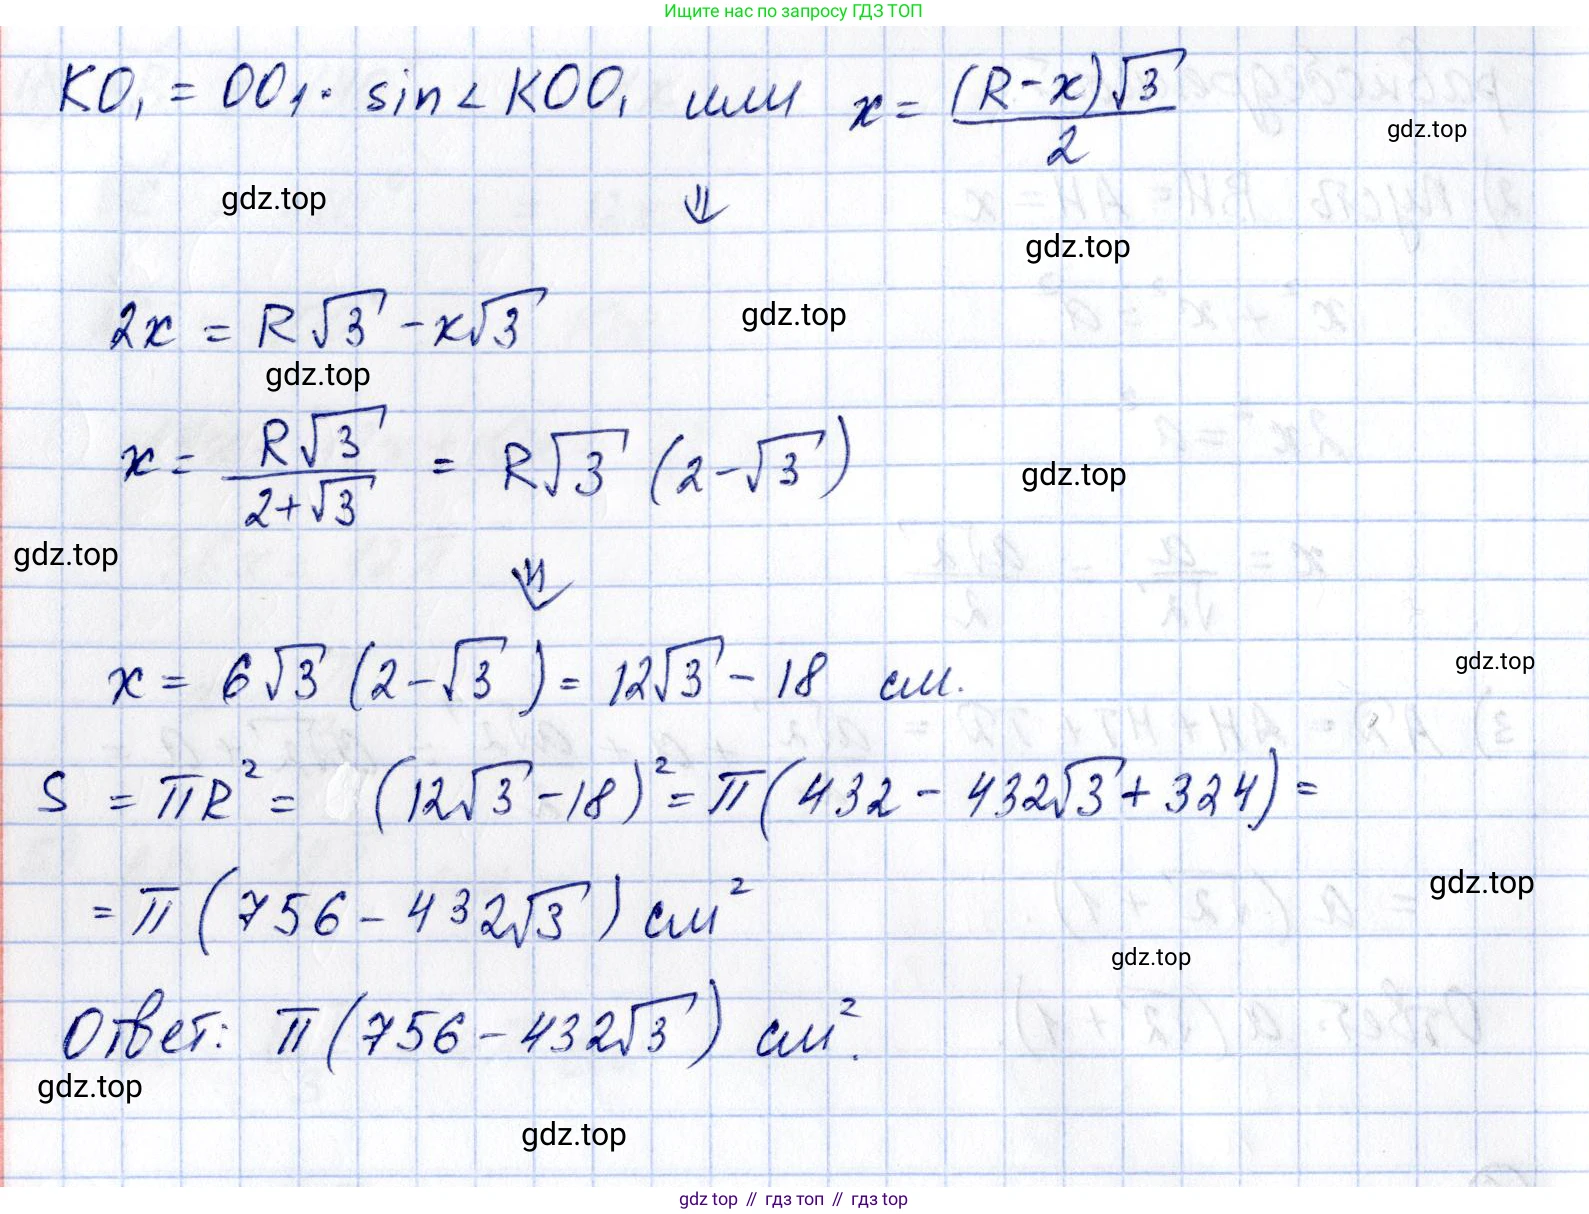 Ищите нас по запросу ГДЗ ТОП
KO₁ = OO₁ · sin∠KOO₁ или x = (R-x)√3 / 2
gdz.top
gdz.top
⇓
gdz.top
2x = R√3 - x√3
gdz.top
gdz.top
x = R√3 / (2+√3) = R√3 (2-√3)
gdz.top
gdz.top
⇓
x = 6√3 (2-√3) = 12√3 - 18 см.
gdz.top
S = πR² = (12√3 - 18)² = π(432 - 432√3 + 324) =
= π(756 - 432√3) см²
gdz.top
gdz.top
Ответ: π(756 - 432√3) см².
gdz.top
gdz.top
gdz top // гдз топ // гдз top